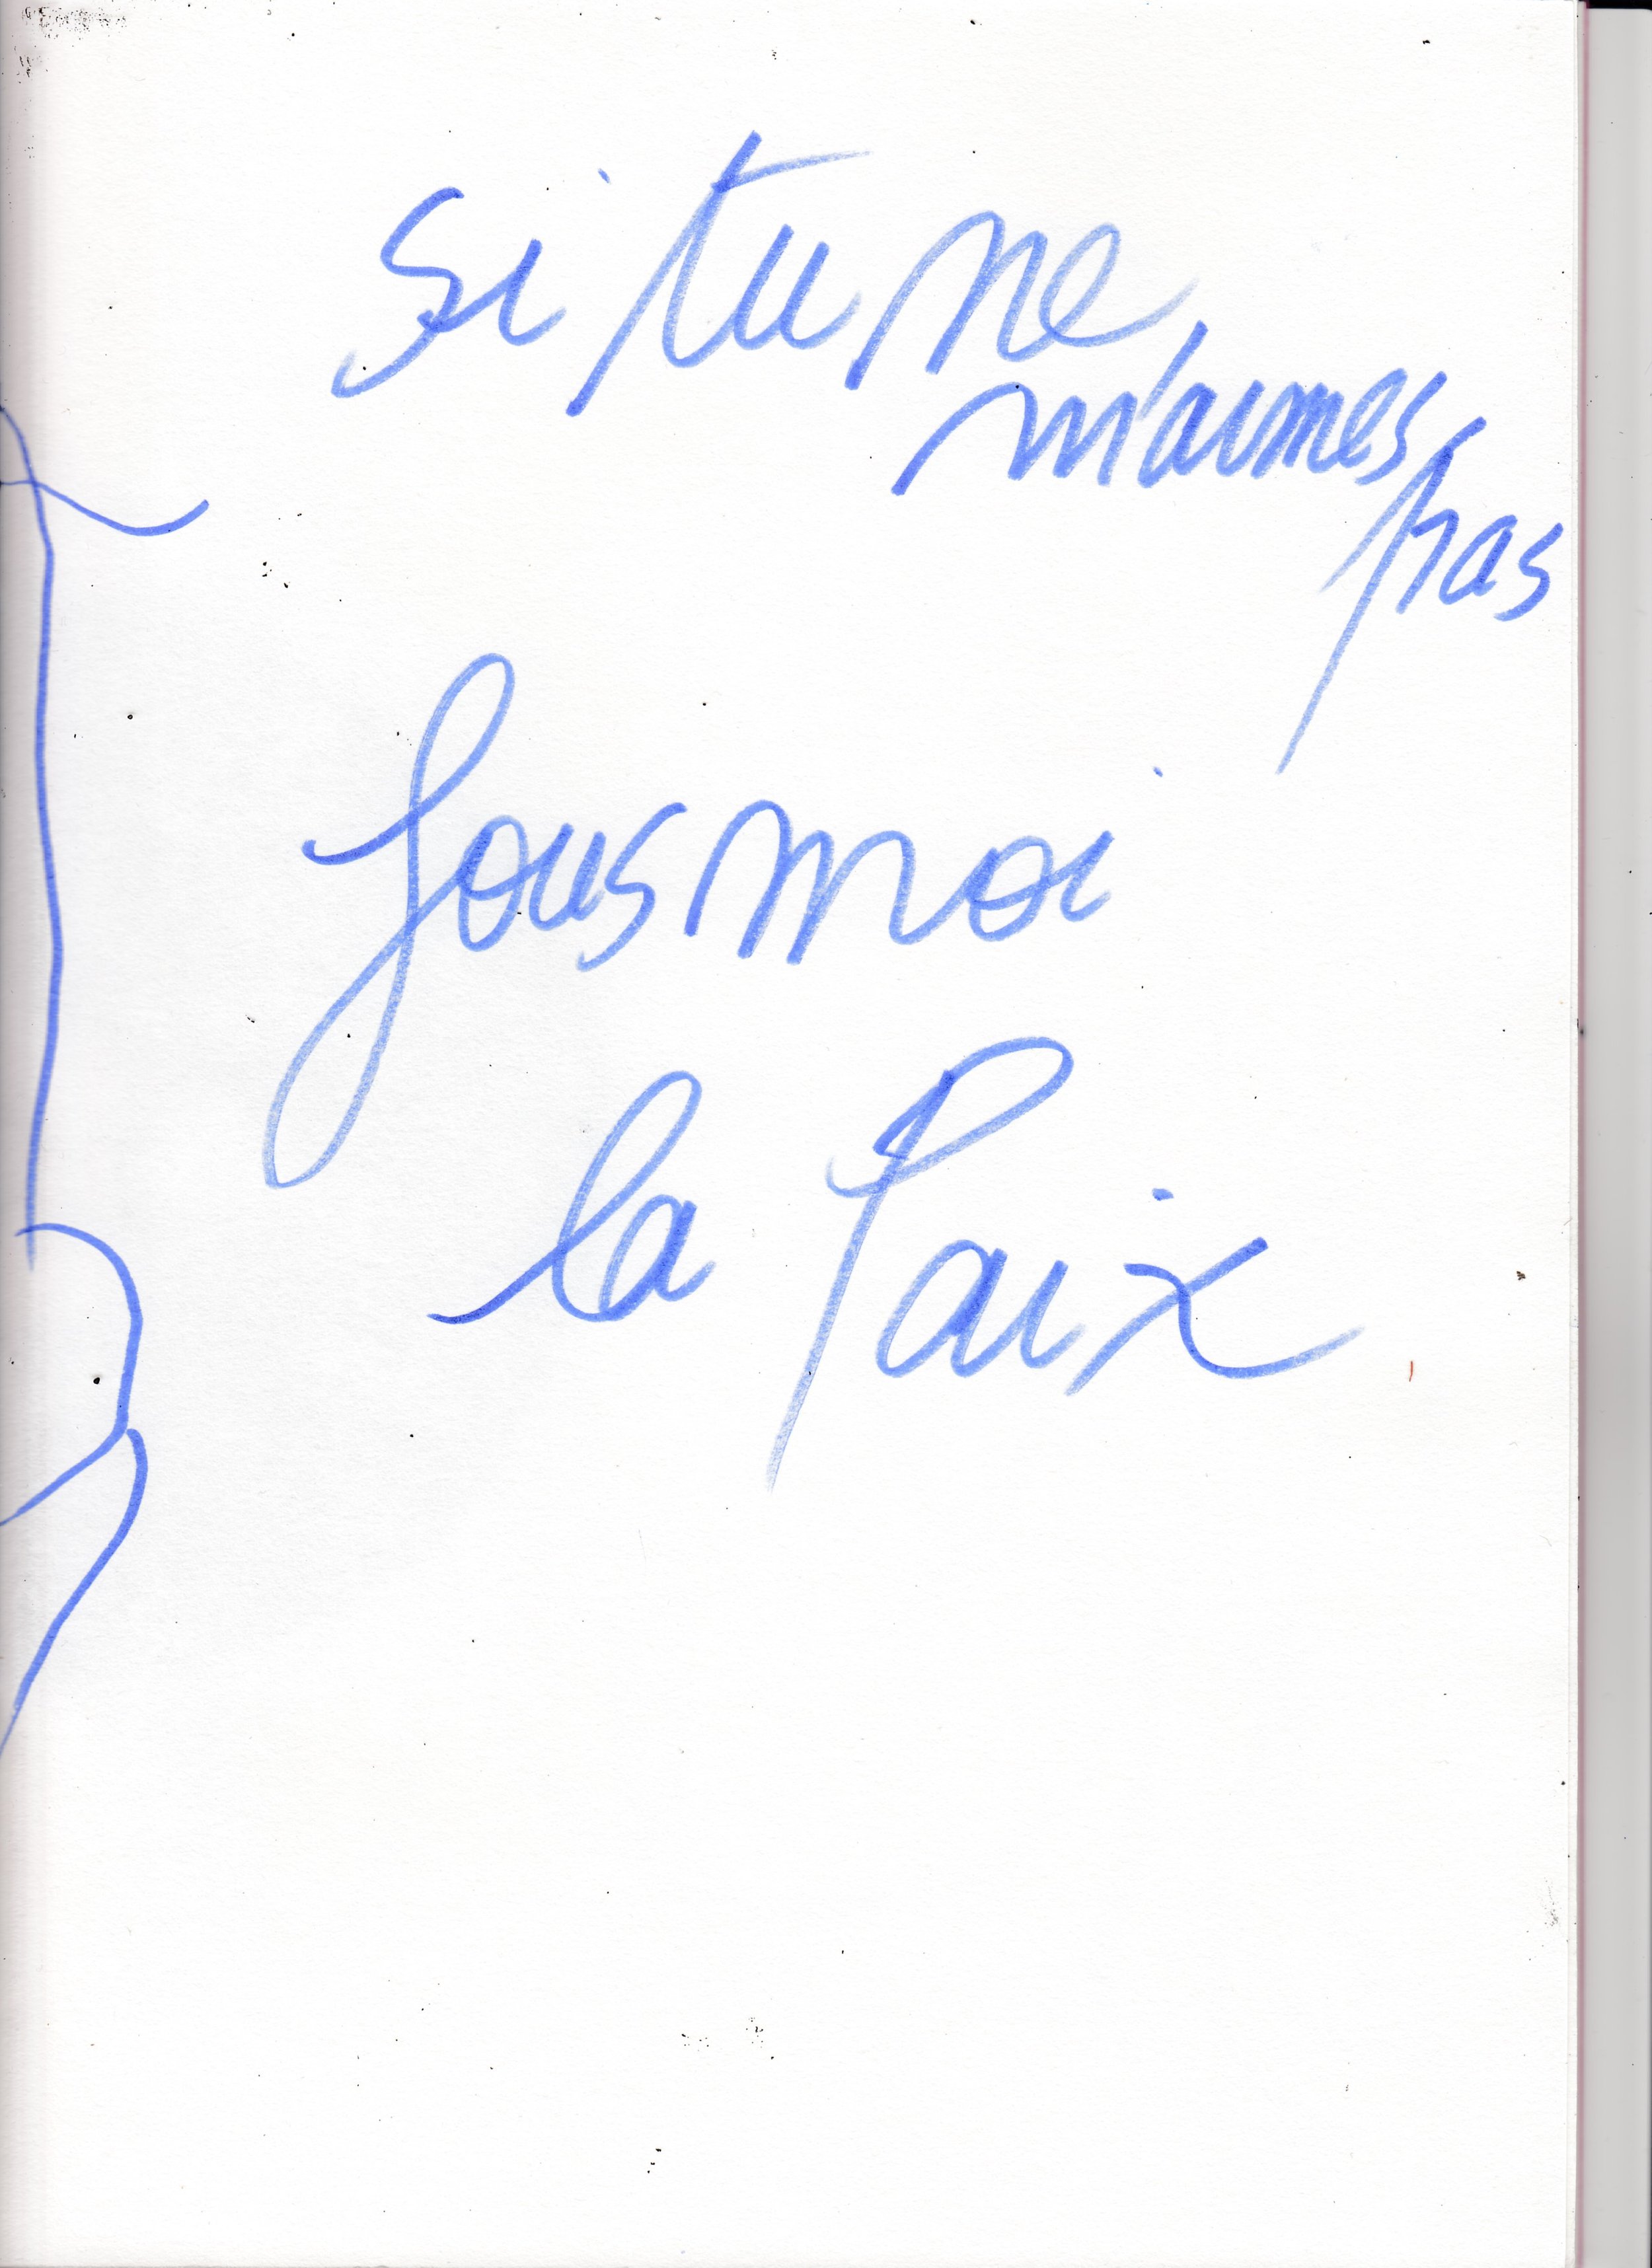 si tu ne
m'aimes
pas
fous moi
la Paix